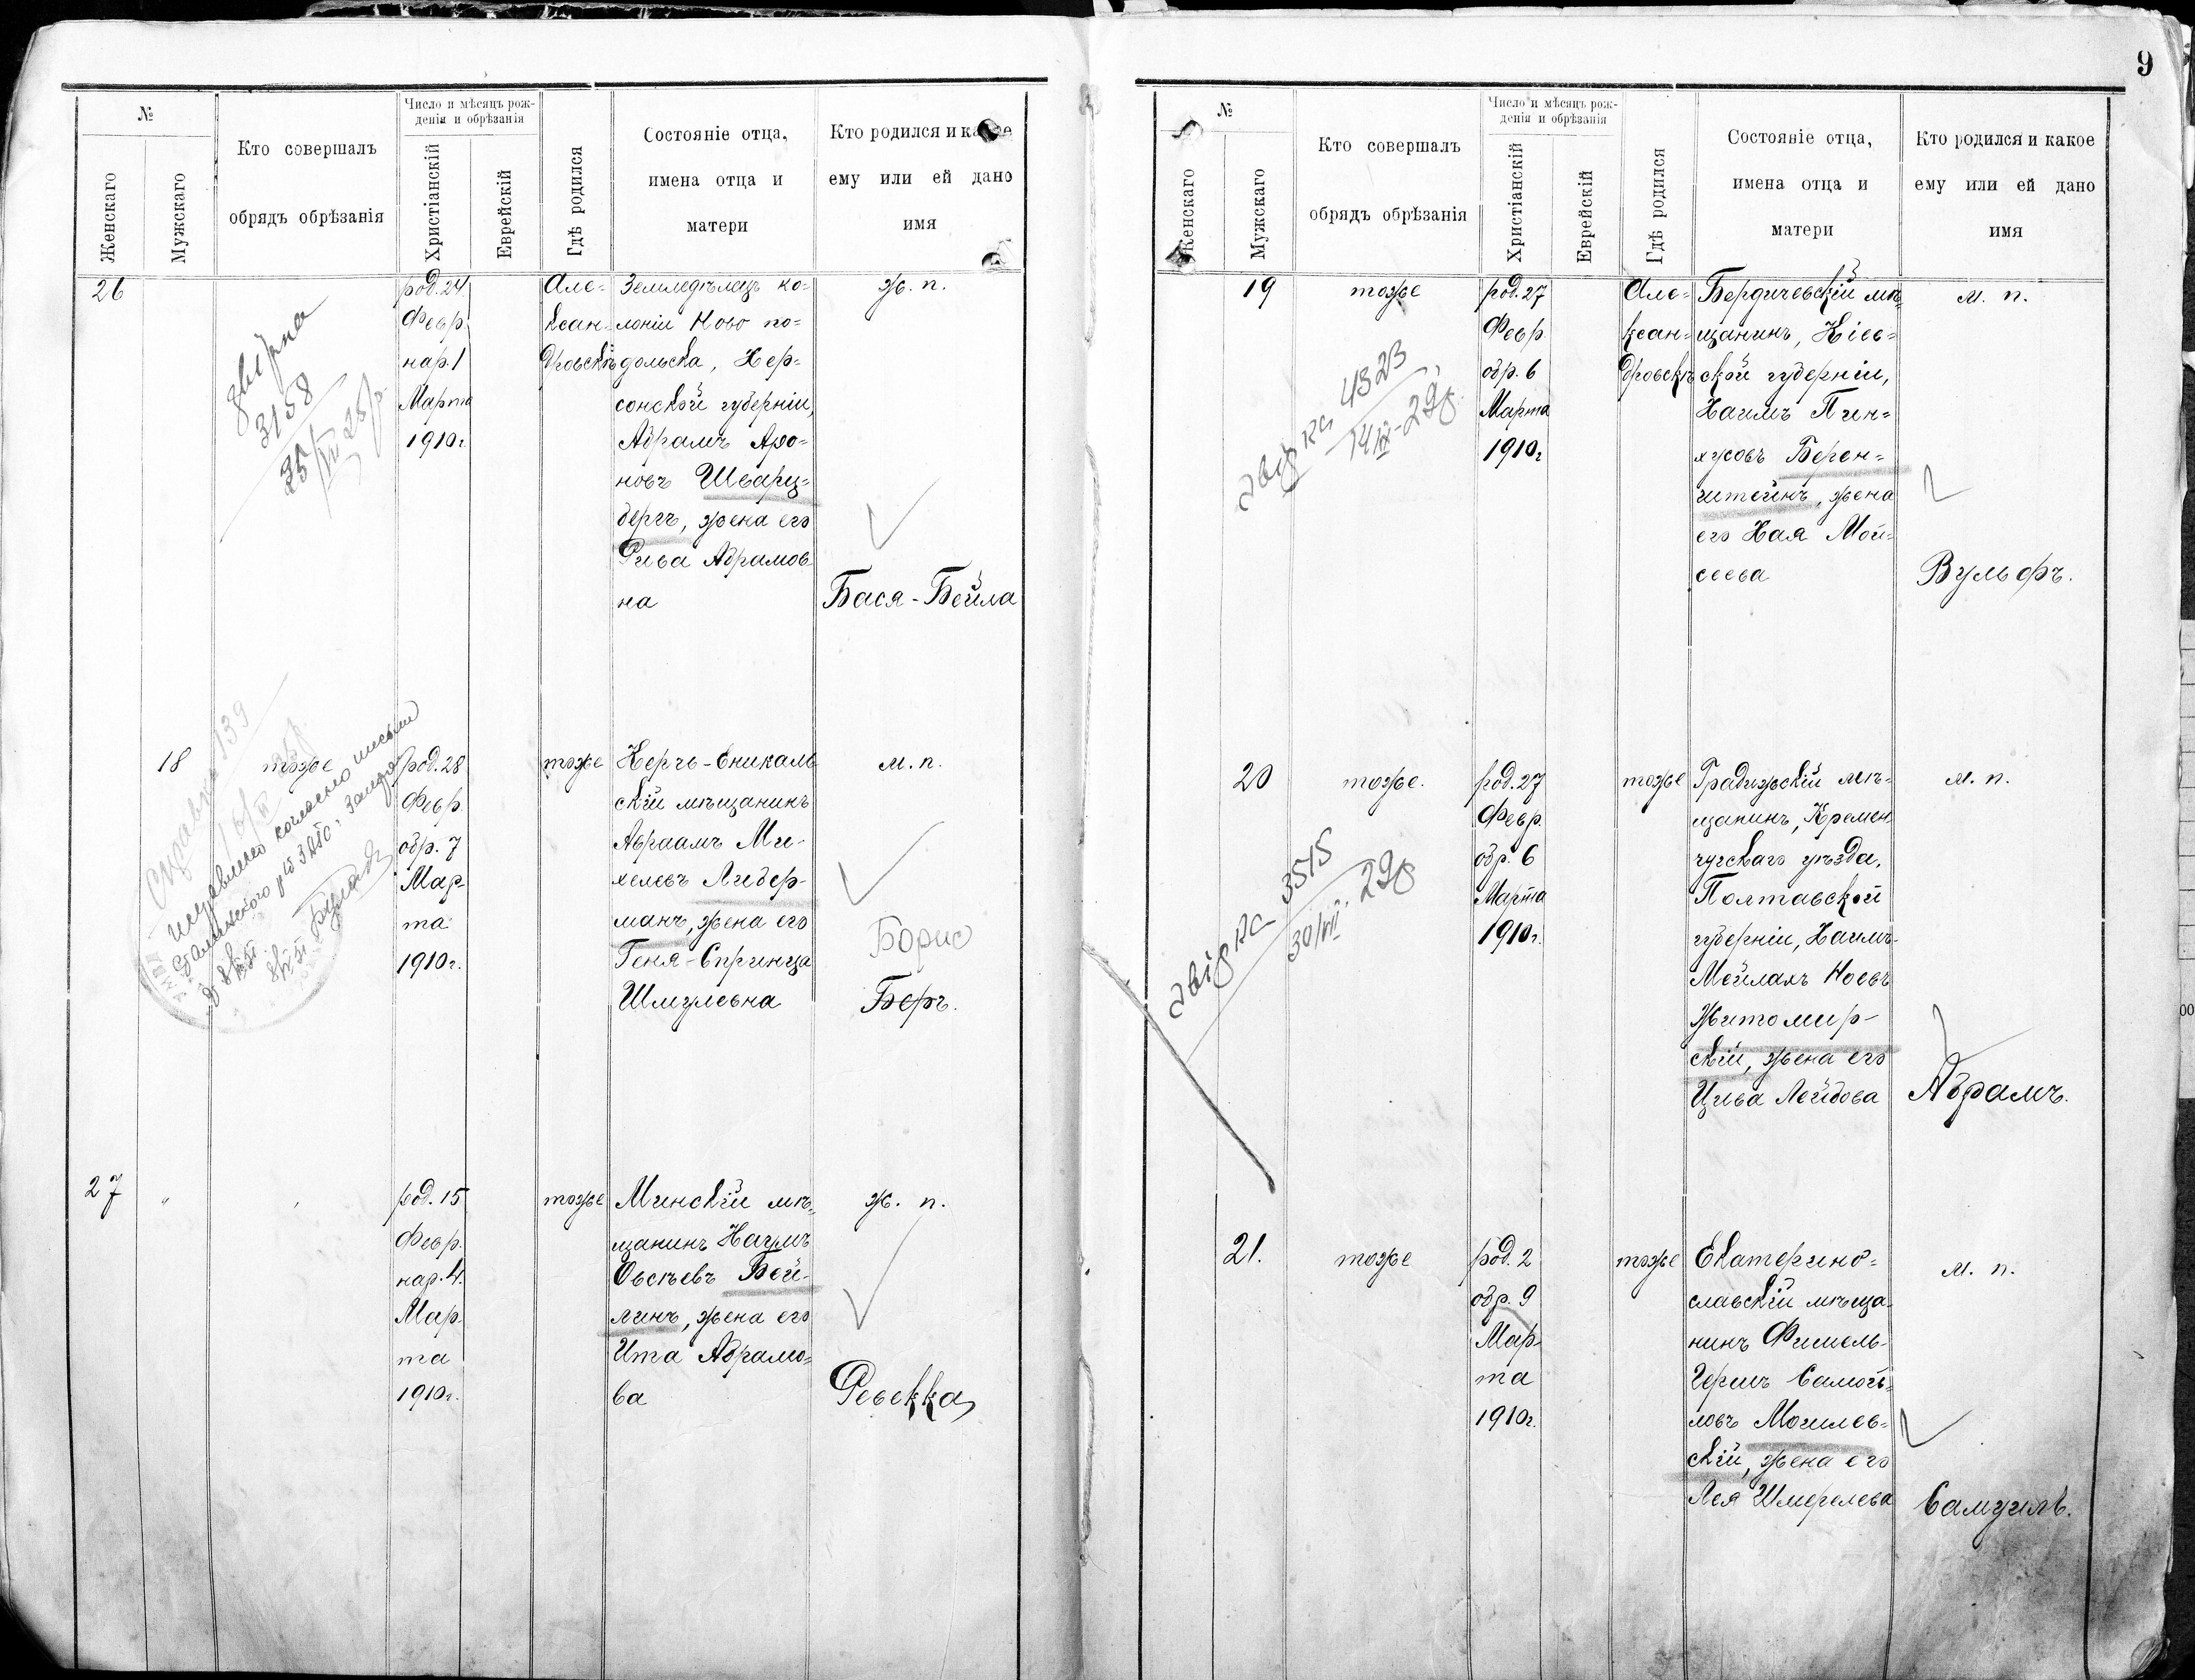 №
Женскаго
Мужскаго
Кто совершалъ
обрядъ обрѣзанія
Число и мѣсяцъ рож-
денія и обрѣзанія
Христіанскій
Еврейскій
Гдѣ родился
Состояніе отца,
имена отца и
матери
Кто родился и какое
ему или ей дано
имя
26
3158
род. 24
Февр.
нар. 1
Марта
1910г.
Але=
ксан=
дровскѣ
Земледѣлецъ ко=
лоніи Ново по=
дольска, Хер=
сонской губерніи,
Абрамъ Аро=
новъ Шварц=
бергъ, жена его
Рива Абрамов
на
ж. п.
Бася-Бейла
18
тоже
139
род. 28
Февр.
обр. 7
Мар-
та
1910г.
тоже
Керчь-Еникаль
скій мѣщанинъ
Авраамъ Ми-
хелевъ Либер-
манъ, жена его
Геня-Спринца
Шмулевна
м. п.
Борис
Беръ.
27
род. 15
Февр.
нар. 4.
Мар-
та
1910г.
тоже
Минскій мѣ=
щанинъ Наумъ
Овсѣевъ Вей-
линъ, жена его
Ита Абрамо=
ва
ж. п.
Ревекка
9
№
Женскаго
Мужскаго
Кто совершалъ
обрядъ обрѣзанія
Число и мѣсяцъ рож-
денія и обрѣзанія
Христіанскій
Еврейскій
Гдѣ родился
Состояніе отца,
имена отца и
матери
Кто родился и какое
ему или ей дано
имя
19
тоже
4323
род. 27
Февр.
обр. 6
Марта
1910г
Але=
ксан=
дровскѣ
Бердичевскій мѣ=
щанинъ, Кіев=
ской губерніи,
Хаимъ Пин=
хусовъ Берен=
штейнъ, жена
его Хая Мой=
сеева
м. п.
Вульфъ.
20
тоже.
3515
род. 27
Февр.
обр. 6
Марта
1910г.
тоже
Градижскій мѣ=
щанинъ, Кремен=
чугскаго уѣзда,
Полтавской
губерніи, Хаимъ-
Мейлахъ Ноевъ
Житомир-
скій, жена его
Цива Лейбова
м. п.
Абрамъ.
21.
тоже
род. 2
обр. 9
Мар-
та
1910г.
тоже
Екатерино=
славскій мѣща-
нинъ Фишель-
Гершъ Самой=
ловъ Могилев=
скій, жена его
Лея Шмерелева
м. п.
Самуилъ.